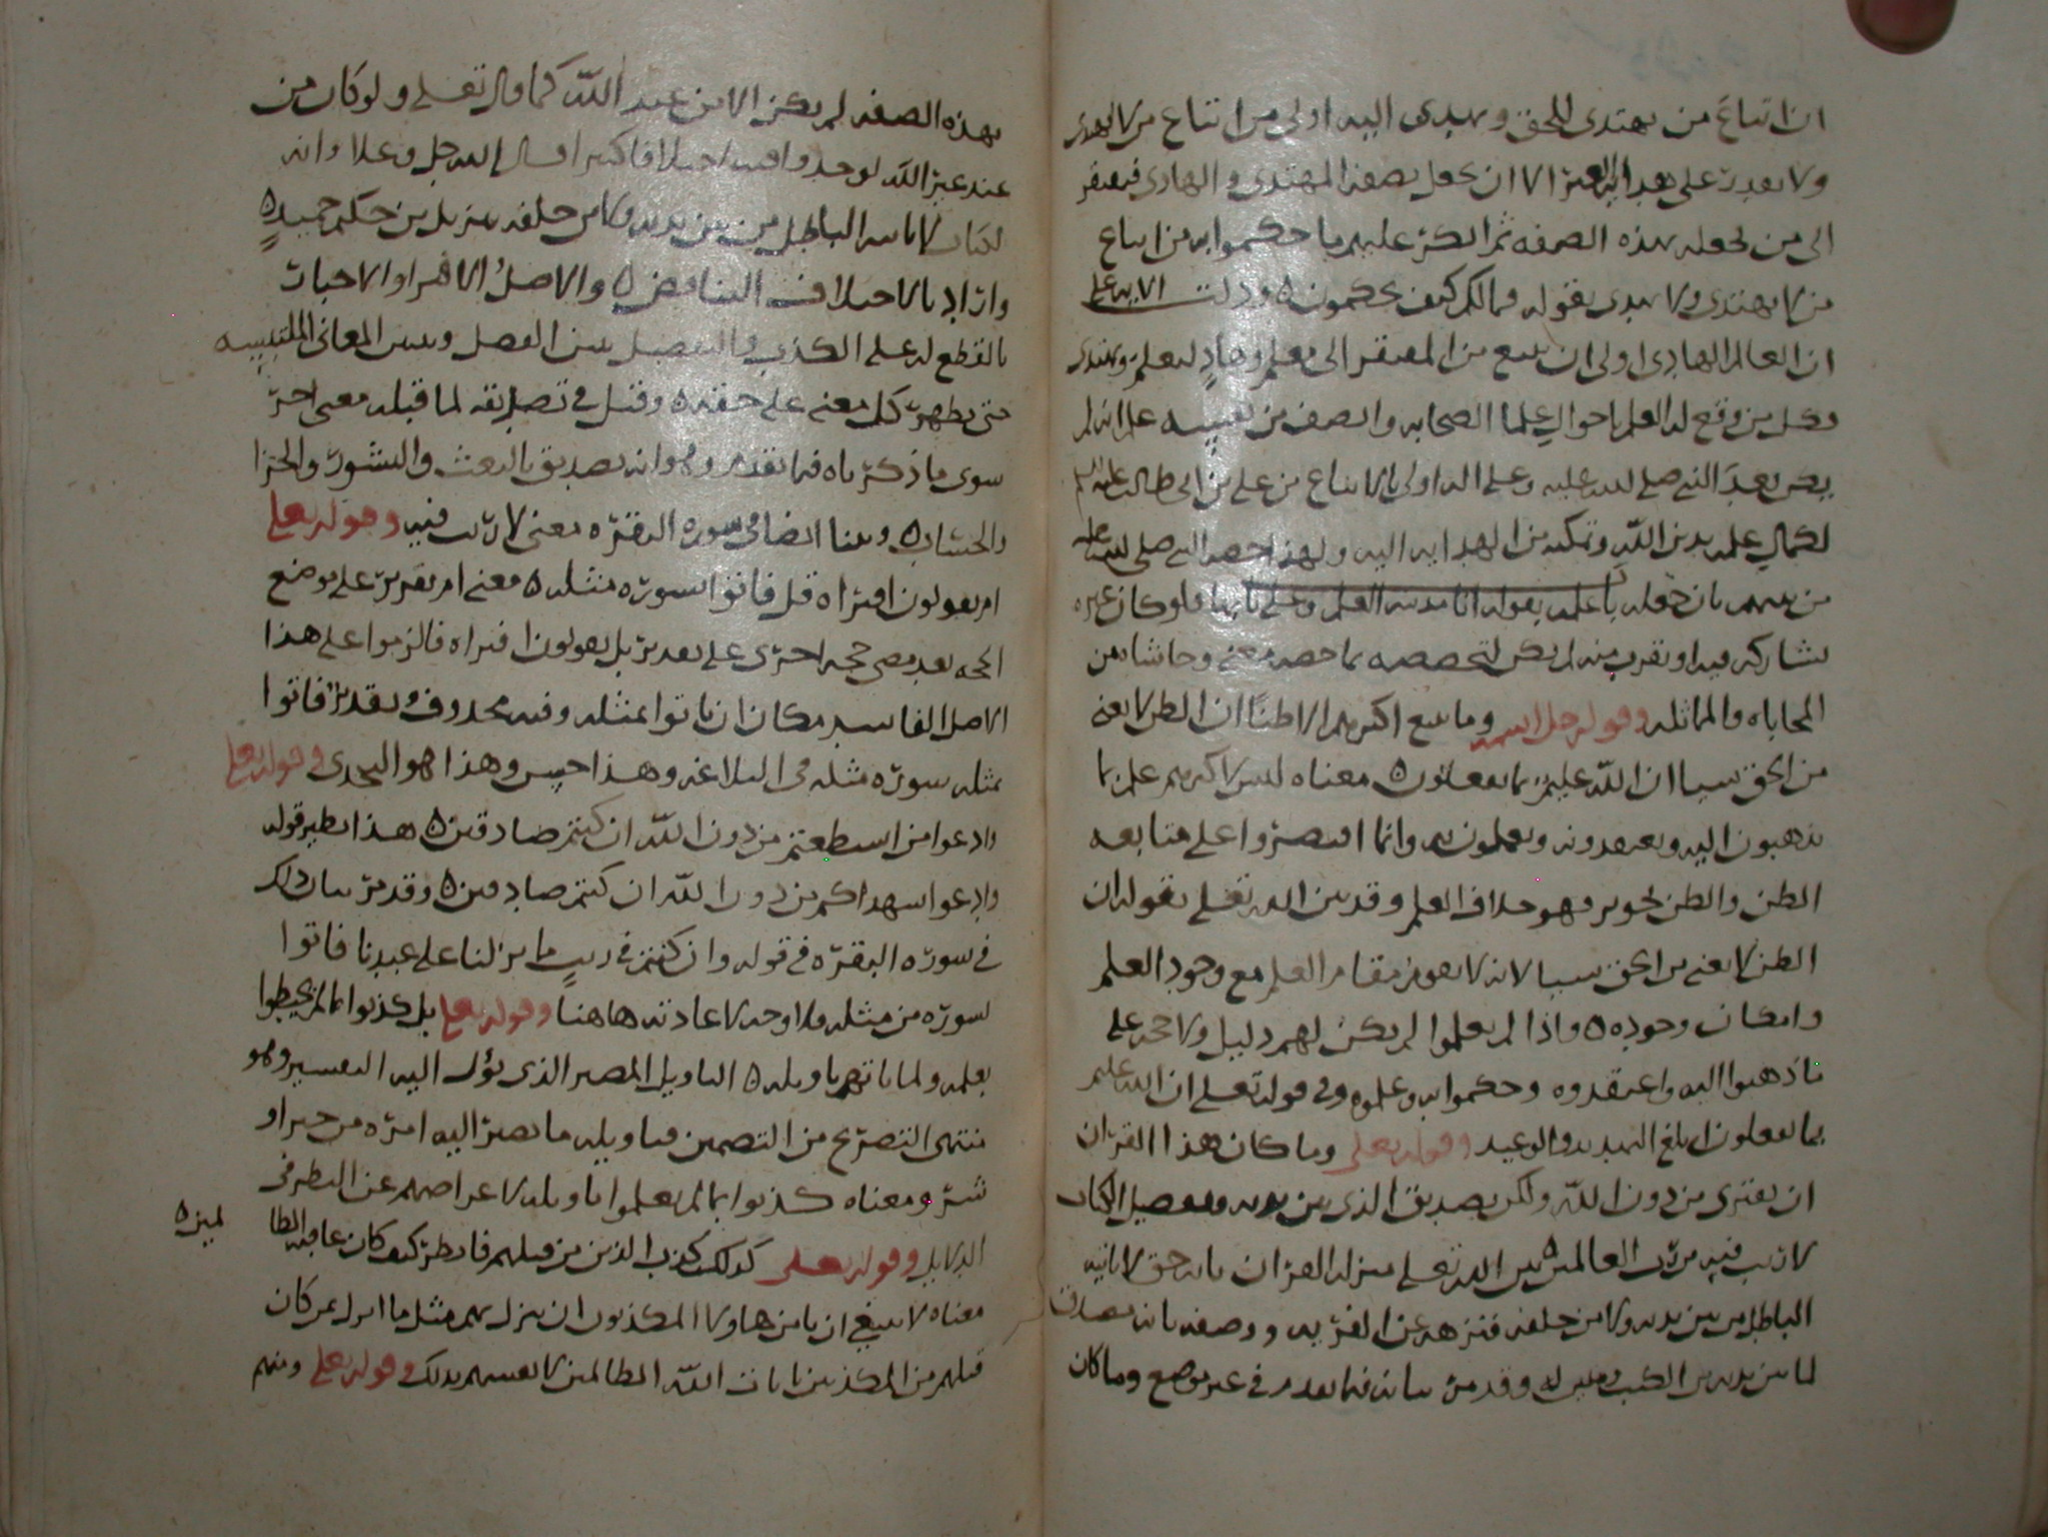 ان اتباع من يهتدى للحق ويهدى اليه اولى من اتباع من لا يهدى
ولا يقدر على هدايه الغير الا ان يجعل بصفه المهتدى والهادى فيفتقر
الى من يجعله بهذه الصفه ثم انكر عليهم ما حكموا به من اتباع
من لا يهتدى ولا يهدى بقوله فما لكم كيف تحكمون ٥ ودلت الايه على
ان العالم الهادى اولى ان يتبع من المفتقر الى معلم وهاد ليعلم ويهتدى
وكل من وقع له العلم باحوال علما الصحابه وانصف من نفسه علم انه لم
يكن بعد النبى صلى الله عليه وعلى اله اولى بالاتباع من على بن ابى طالب عليه السلم
لكمال علمه بدين الله وتمكنه من الهدايه اليه ولهذا خصه النبى صلى الله عليه
من بينهم بان جعله باب علمه بقوله انا مدينه العلم وعلى بابها فلو كان غيره
يشاركه فيه او يقرب منه لم يكن لتخصيصه بما خصه معنى وحاشاه من
المحاباه والمماثله وقوله جل اسمه وما يتبع اكثرهم الا ظنا ان الظن لا يغنى
من الحق شيا ان الله عليم بما يفعلون ٥ معناه ليس لاكثرهم علم بما
يذهبون اليه ويعتقدونه ويعملون به وانما اقتصروا على متابعه
الظن والظن تجويز وهو خلاف العلم وقد بين الله تعلى بقوله ان
الظن لا يغنى من الحق شيا لانه لا يقوم مقام العلم مع وجود العلم
وامكان وجوده ٥ واذا لم يعلموا لم يكن لهم دليل ولا حجه على
ما ذهبوا اليه واعتقدوه وحكموا به وعلموه وفى قوله تعلى ان الله عليم
بما يفعلون ابلغ التهديد والوعيد وقوله تعلى وما كان هذا القران
ان يفترى من دون الله ولكن تصديق الذى بين يديه وتفصيل الكتاب
لا ريب فيه من رب العالمين ٥ بين الله تعلى منزله القران بانه حق لا ياتيه
الباطل من بين يديه ولا من خلفه فنزهه عن الفريه ووصفه بانه مصدق
لما بين يديه من الكتب ومبين له وقد مر بيانه فيما تقدم فى غير موضع وما كان
بهذه الصفه لم يكن الا من عند الله كما قال تعلى ولو كان من
عند غير الله لوجدوا فيه اختلافا كثيرا وقال الله جل وعلا وانه
لكتاب لا ياتيه الباطل من بين يديه ولا من خلفه تنزيل من حكيم حميد ٥
واراد بالاختلاف التناقض ٥ والاصل الافترا والاخبار
بالقطع له على الكذب والتفصيل بين الفصل وبين المعانى الملتبسه
حتى يظهر كل معنى على حقه ٥ وقيل فى تصديقه لما قبله معنى اخر
سوى ما ذكرناه فيما تقدم وهو انه تصديق بالبعث والنشور والجزا
والحساب ٥ وبينا ايضا فى سوره البقره معنى لا ريب فيه وقوله تعلى
ام يقولون افتراه قل فاتوا بسوره مثله ٥ معنى ام تقرير على موضع
الحجه بعد مضى حجه اخرى على تقدير بل يقولون افتراه فالزموا على هذا
الاصل الفاسد مكان ان ياتوا بمثله وفيه محذوف وتقديره فاتوا
بمثله سوره مثله فى البلاغه وهذا حسن وهذا هو التحدى وقوله تعلى
وادعوا من استطعتم من دون الله ان كنتم صادقين ٥ هذا نظير قوله
وادعوا شهداكم من دون الله ان كنتم صادقين ٥ وقد مر بيان ذلك
فى سوره البقره فى قوله وان كنتم فى ريب مما نزلنا على عبدنا فاتوا
بسوره من مثله فلا وجه لاعادته هاهنا وقوله تعلى بل كذبوا بما لم يحيطوا
بعلمه ولما ياتهم تاويله ٥ التاويل المصير الذى يؤل اليه التفسير وهو
منتهى التصريح من التضمين فتاويله ما يصير اليه امره من خير او
شر ومعناه كذبوا بما لم يعلموا تاويله لاعراضهم عن النظر فى
الدلايل وقوله تعلى كذلك كذب الذين من قبلهم فانظر كيف كان عاقبه الظا
لمين ٥
معناه لا ينبغى ان يامن هاولا المكذبون ان ينزل بهم مثل ما انزل بمن كان
قبلهم من المكذبين بايات الله الظالمين لانفسهم بذلك وقوله تعلى ومنهم